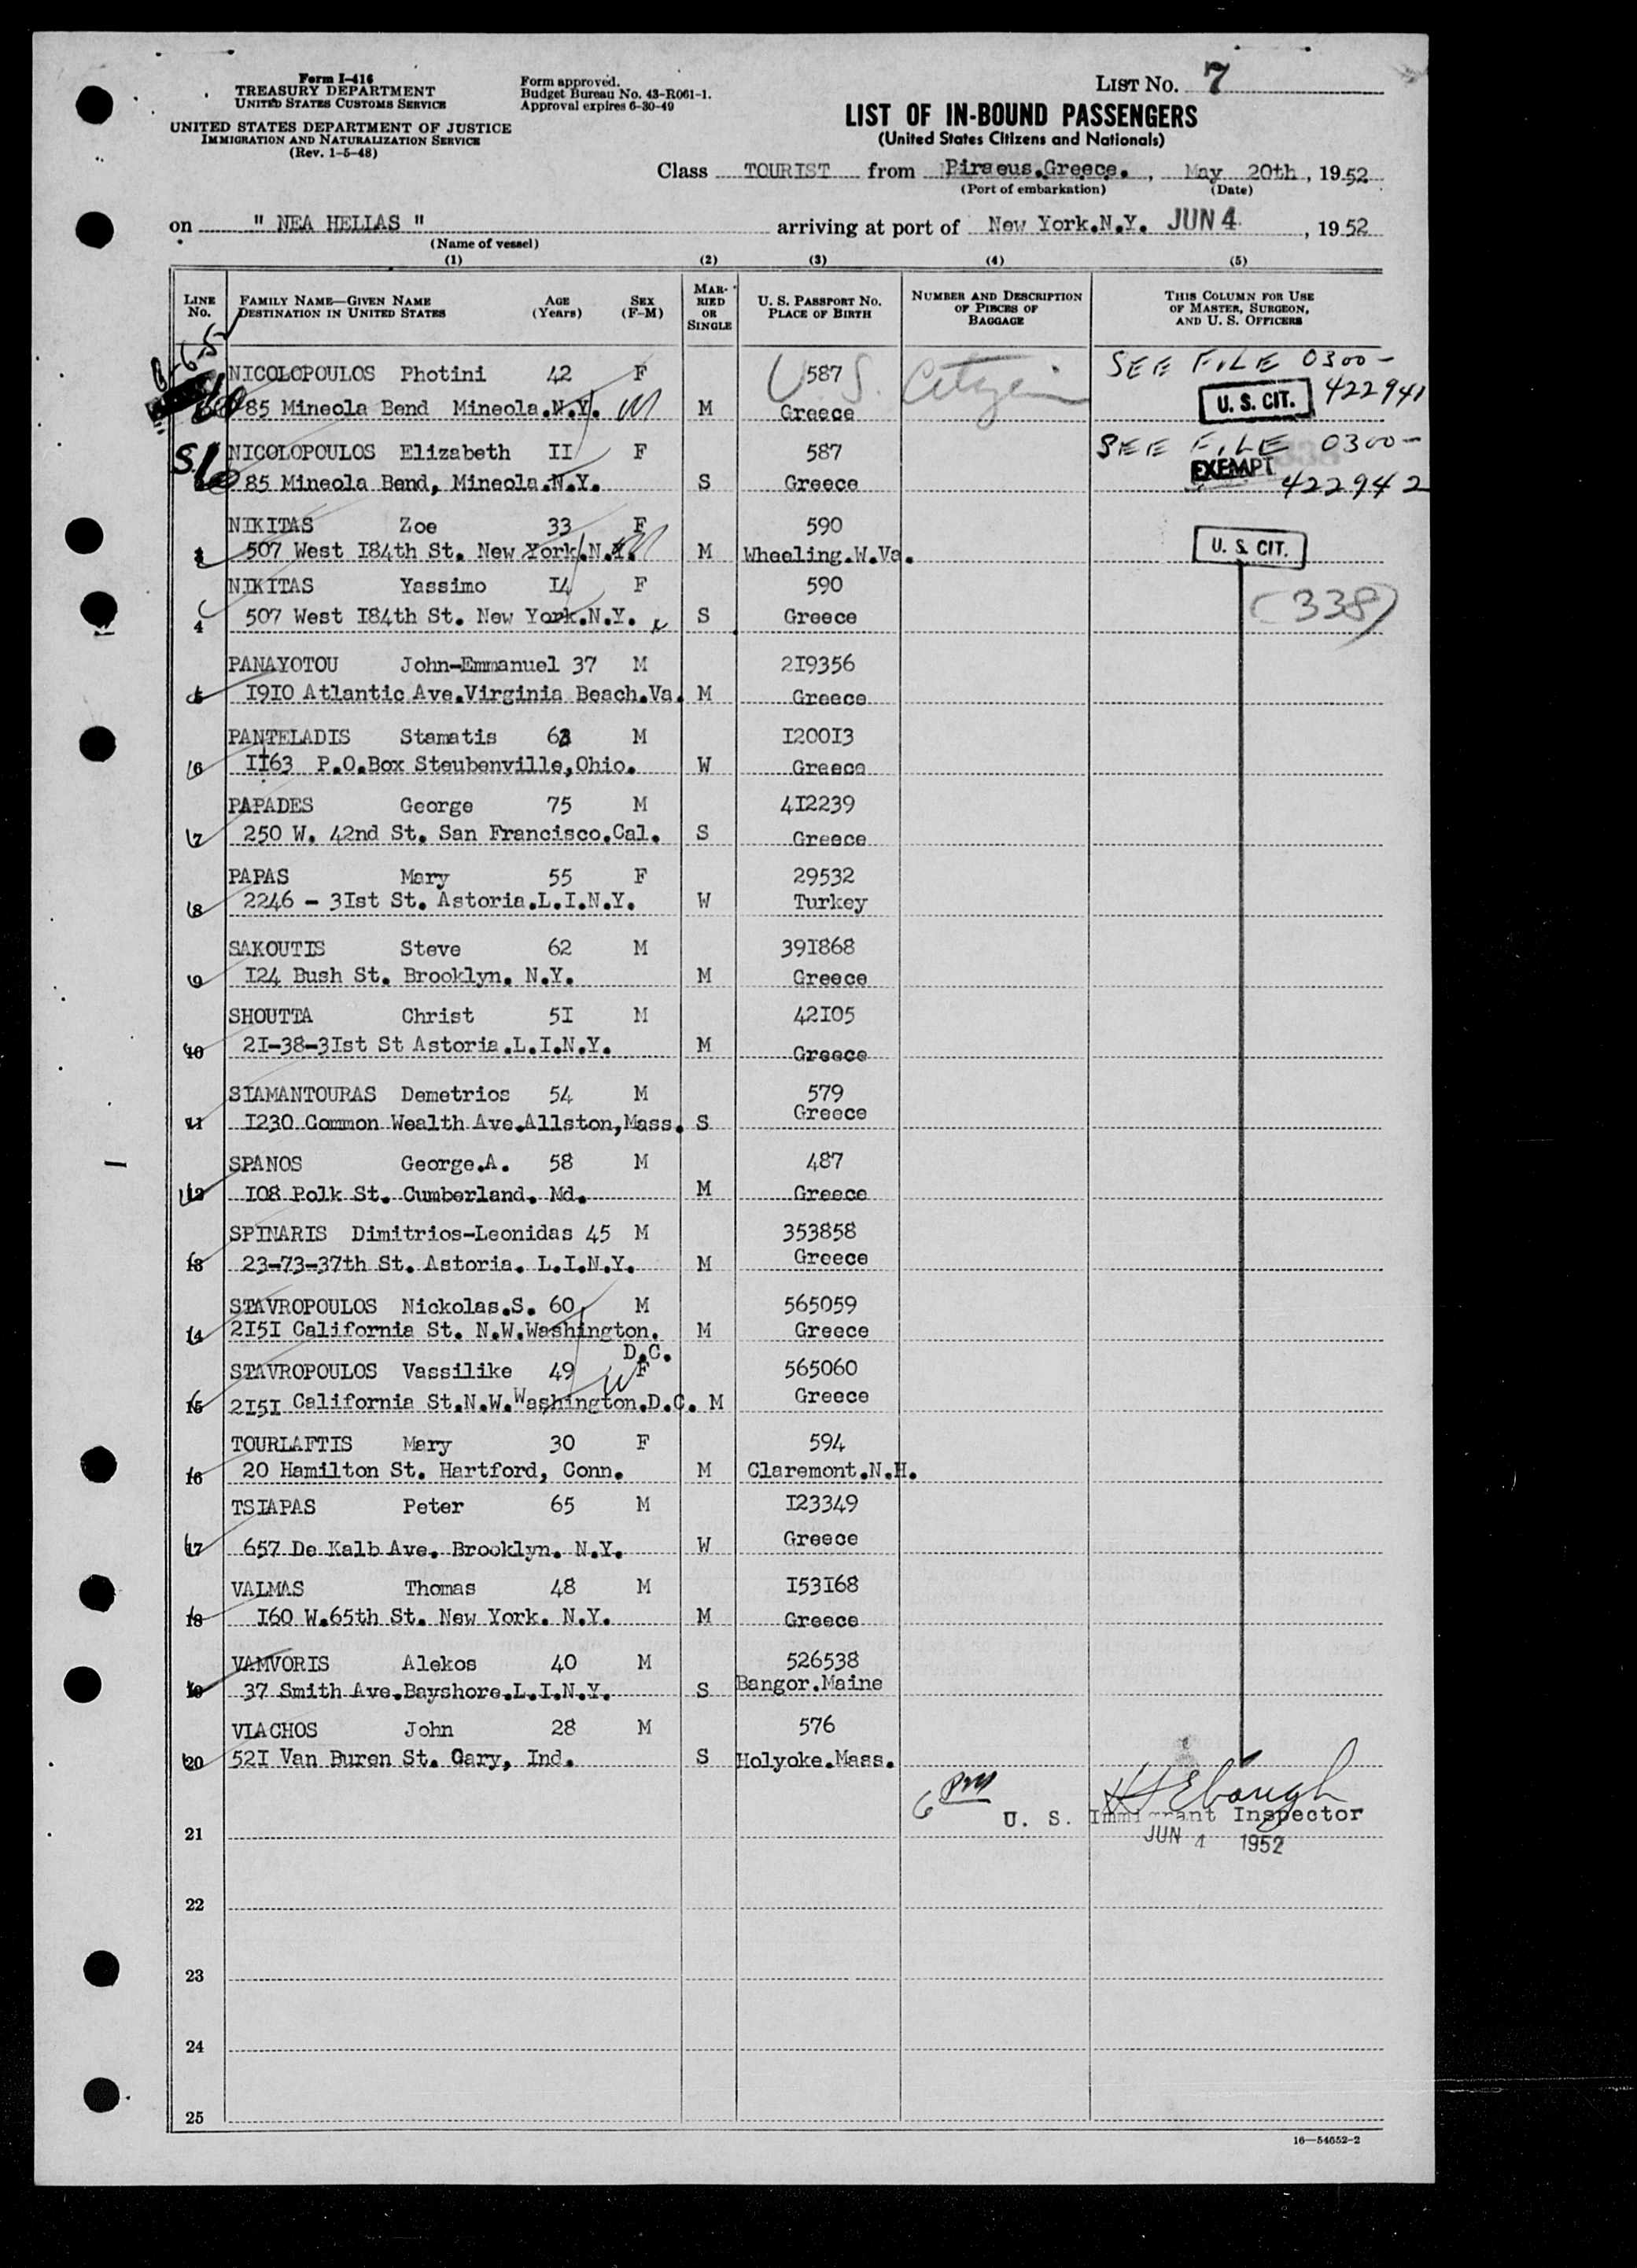 Form I-416
TREASURY DEPARTMENT
UNITED STATES CUSTOMS SERVICE
UNITED STATES DEPARTMENT OF JUSTICE
IMMIGRATION AND NATURALIZATION SERVICE
(Rev. 1-5-48)
Form approved.
Budget Bureau No. 43-R061-1.
Approval expires 6-30-49
LIST No. 7
LIST OF IN-BOUND PASSENGERS
(United States Citizens and Nationals)
Class TOURIST from Piraeus.Greece. , May 20th , 1952
(Port of embarkation) (Date)
on " NEA HELLAS " arriving at port of New York.N.Y. JUN 4 , 1952
(Name of vessel)
(1) (2) (3) (4) (5)
LINE No. FAMILY NAME—GIVEN NAME DESTINATION IN UNITED STATES AGE (Years) SEX (F-M) MARRIED OR SINGLE U. S. PASSPORT No. PLACE OF BIRTH NUMBER AND DESCRIPTION OF PIECES OF BAGGAGE THIS COLUMN FOR USE OF MASTER, SURGEON, AND U. S. OFFICERS
6-6-52
NICOLOPOULOS Photini 42 F 587 U.S. Citizen SEE FILE 0300-
85 Mineola Bend Mineola.N.Y. M Greece U. S. CIT. 422941
NICOLOPOULOS Elizabeth II F 587 SEE FILE 0300-
85 Mineola Bend, Mineola.N.Y. S Greece EXEMPT 422942
NIKITAS Zoe 33 F 590
3 507 West I84th St. New York.N.Y. M Wheeling.W.Va. U. S. CIT.
NIKITAS Yassimo I4 F 590 (338)
4 507 West I84th St. New York.N.Y. S Greece
PANAYOTOU John-Emmanuel 37 M 2I9356
5 I9I0 Atlantic Ave.Virginia Beach.Va. M Greece
PANTELADIS Stamatis 63 M I200I3
6 II63 P.O.Box Steubenville,Ohio. W Greece
PAPADES George 75 M 4I2239
7 250 W. 42nd St. San Francisco.Cal. S Greece
PAPAS Mary 55 F 29532
8 2246 - 3Ist St. Astoria.L.I.N.Y. W Turkey
SAKOUTIS Steve 62 M 39I868
9 I24 Bush St. Brooklyn. N.Y. M Greece
SHOUTTA Christ 5I M 42I05
10 2I-38-3Ist St Astoria.L.I.N.Y. M Greece
SIAMANTOURAS Demetrios 54 M 579
11 I230 Common Wealth Ave.Allston,Mass. S Greece
SPANOS George.A. 58 M 487
12 I08 Polk St. Cumberland. Md. M Greece
SPINARIS Dimitrios-Leonidas 45 M 353858
13 23-73-37th St. Astoria. L.I.N.Y. M Greece
STAVROPOULOS Nickolas.S. 60 M 565059
14 2I5I California St. N.W.Washington. M Greece
D.C.
STAVROPOULOS Vassilike 49 F 565060
15 2I5I California St.N.W.Washington.D.C. M Greece
TOURLAFTIS Mary 30 F 594
16 20 Hamilton St. Hartford, Conn. M Claremont.N.H.
TSIAPAS Peter 65 M I23349
17 657 De Kalb Ave. Brooklyn. N.Y. W Greece
VALMAS Thomas 48 M I53I68
18 I60 W.65th St. New York. N.Y. M Greece
VAMVORIS Alekos 40 M 526538
19 37 Smith Ave.Bayshore.L.I.N.Y. S Bangor.Maine
VLACHOS John 28 M 576
20 52I Van Buren St. Gary, Ind. S Holyoke.Mass.
6 PM
U. S. Immigrant Inspector
JUN 4 1952
21
22
23
24
25
16—54652-2